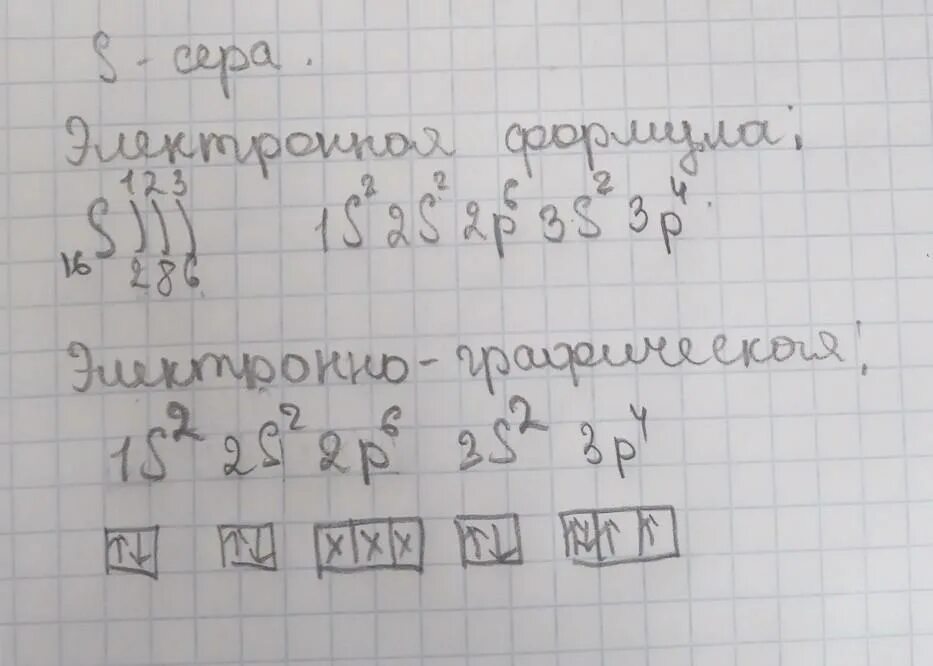 S - сера.
Электронная формула:
1 2 3
16 S ))) 1S² 2S² 2p⁶ 3S² 3p⁴.
2 8 6
Электронно-графическая:
1S² 2S² 2p⁶ 3S² 3p⁴
↑↓ ↑↓ x x x ↑↓ ↑↓ ↑ ↑